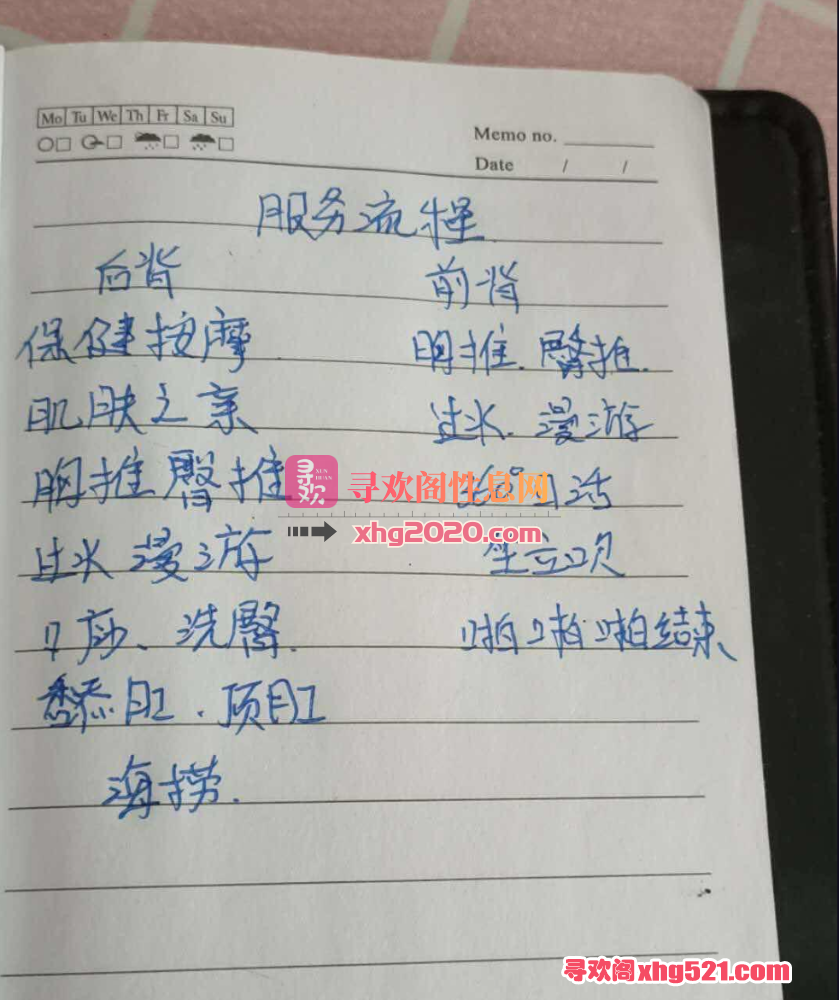 Mo Tu We Th Fr Sa Su
Memo no.
Date / /
服务流程
后背 前背
保健按摩 胸推.臀推.
肌肤之亲 过水.漫游
胸推臀推 口活
过水漫游
沙、洗臀. 啪啪啪结束、
舔肛.顶肛
海捞.
寻欢
XUN HUAN
寻欢阁性息网
xhg2020.com
寻欢阁xhg521.com